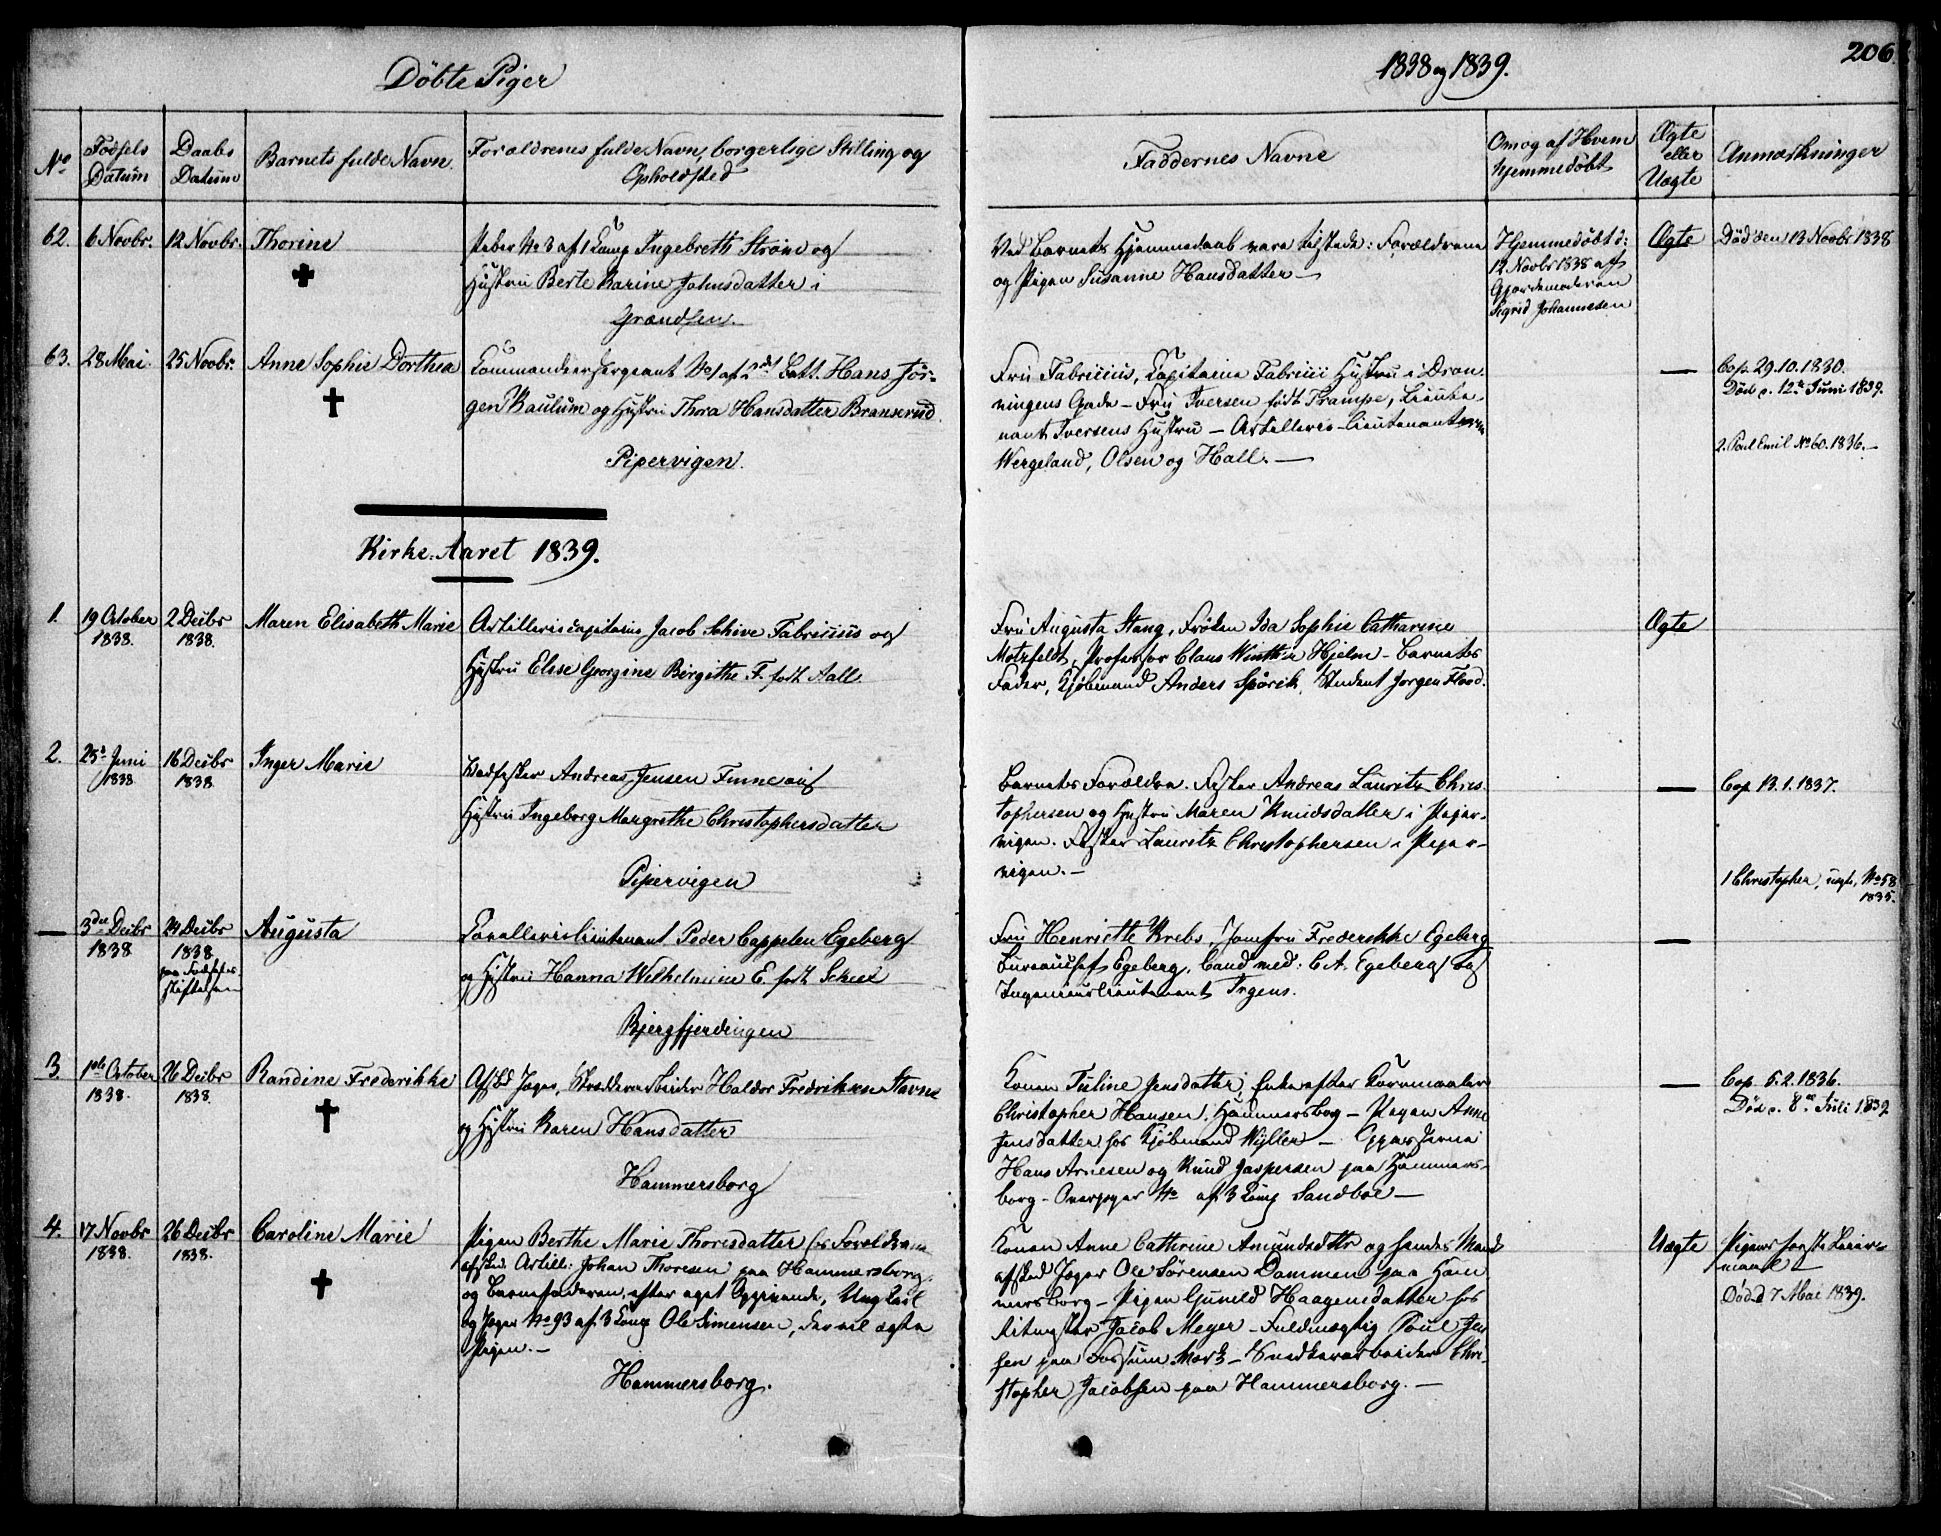 Döbte Piger
1838 og 1839.
206.
No
Födsels Datum
Daabs Datum
Barnets fulde Navn.
Forældrenes fulde Navn, borgerlige Stilling og Opholdsted
Faddernes Navne
Om og af Hvem hjemmedöbt
Ægte eller Uægte
Anmærkninger
62.
6 Novbr.
12 Novbr.
Thorine
Piber No 3 af 1 Comp Ingebreth Ström og
Hustru Berte Karine Johnsdatter i
Grændsen.
Ved Barnets Hjemmedaab vare tilstede: Forældrene
og Pigen Susanne Hansdatter —
Hjemmedöbt d:
12 Novbr 1838 af
Gjordemoderen
Sigrid Johannesen
Ægte
Död den 13 Novbr 1838
63.
28 Mai.
25 Novbr.
Anne Sophie Dorthea
Commandeersergeant No 1 af 2det Batt. Hans Jör-
gen Paulum og Hustru Thora Hansdatter Branserud.
Pipervigen.
Fru Fabricius, Capitaine Fabricii Hustru i Dron-
ningens Gade — Fru Iversen födt Trampe, Lieute-
nant Iversens Hustru — Artillerie-Lieutenanterne
Wergeland, Olsen og Hall. —
—
Cop. 29.10.1830.
Död d. 12te Juni 1839.
2. Poul Emil No 60. 1836. —
Kirke-Aaret 1839.
1.
19 October
1838.
2 Decbr
1838.
Maren Elisabeth Marie
Artilleriecapitaine Jacob Schive Fabricius og
Hustru Elise Georgine Birgithe F. født Aall.
Fru Augusta Stang, Fröken Ida Sophie Catharine
Motzfeldt, Professor Claus Winther Hjelm — Barnets
Fader, Kjöbmand Anders Spörck, Student Jörgen Flood.
Ægte
2.
25d Juni
1838
16 Decbr
1838
Inger Marie
Andreas Jensen Finne og
Hustru Ingeborg Margrethe Christophersdatter
Pipervigen
Barnets Forældre. Fisker Andreas Lauritz Chris-
tophersen og Hustru Maren Knudsdatter i Piper-
vigen. Fisker Lauritz Christophersen i Piper-
vigen. —
—
Cop. 13.1.1837.
1 Christopher, uægt., No 58
1835.
—
3die Decbr
1838
24 Decbr
1838
paa Födsels-
stiftelsen
Augusta
Cavallerielieutenant Peder Cappelen Egeberg
og Hustru Hanna Wilhelmine E. født Scheel
Bjergfjerdingen
Fru Henriette Krebs, Jomfru Frederikke Egeberg
Bureauchef Egeberg, Cand med: C. A. Egeberg og
Ingenieurlieutenant Irgens.
—
3
1ste October
1838.
26 Decbr
1838.
Randine Frederikke
Afskd Jæger, Haldor Fredriksen Stavne
og Hustru Karen Hansdatter
Hammersborg
Konen Tuline Jensdatter, Enke efter Kornmaaler
Christopher Hansen, Hammersborg — Pigen Anne
Jensdatter hos Kjöbmand Wyller —
Hans Arnesen og Knud Jaspersen paa Hammers-
borg — Overjæger No af 3 Comp Sandboe —
—
Cop. 5.2.1836.
Död d. 8de Juli 1839
4.
17 Novbr
1838.
26 Decbr
1838.
Caroline Marie
Pigen Berthe Marie Thoresdatter hos Forældrene
afsked. Artill: Johan Thoresen paa Hammersborg,
og Barnefaderen, efter eget Opgivende, Ungkarl
og Jæger No 93 af 3 Comp Ole Simensen, der vil ægte
Pigen. —
Hammersborg.
Konen Anne Cathrine Amundsdttr og hendes Mand
afsked Jæger Ole Sörensen Dammen paa Ham
mersborg — Pigen Gunild Haagensdatter hos
Ritmester Jacob Meyer — Fuldmægtig Poul Jen
sen paa Fossum Værk — Snedkerarbeider Chri-
stopher Jacobsen paa Hammersborg. —
Uægte
Pigens förste Leier-
maal —
Död d 7 Mai 1839.